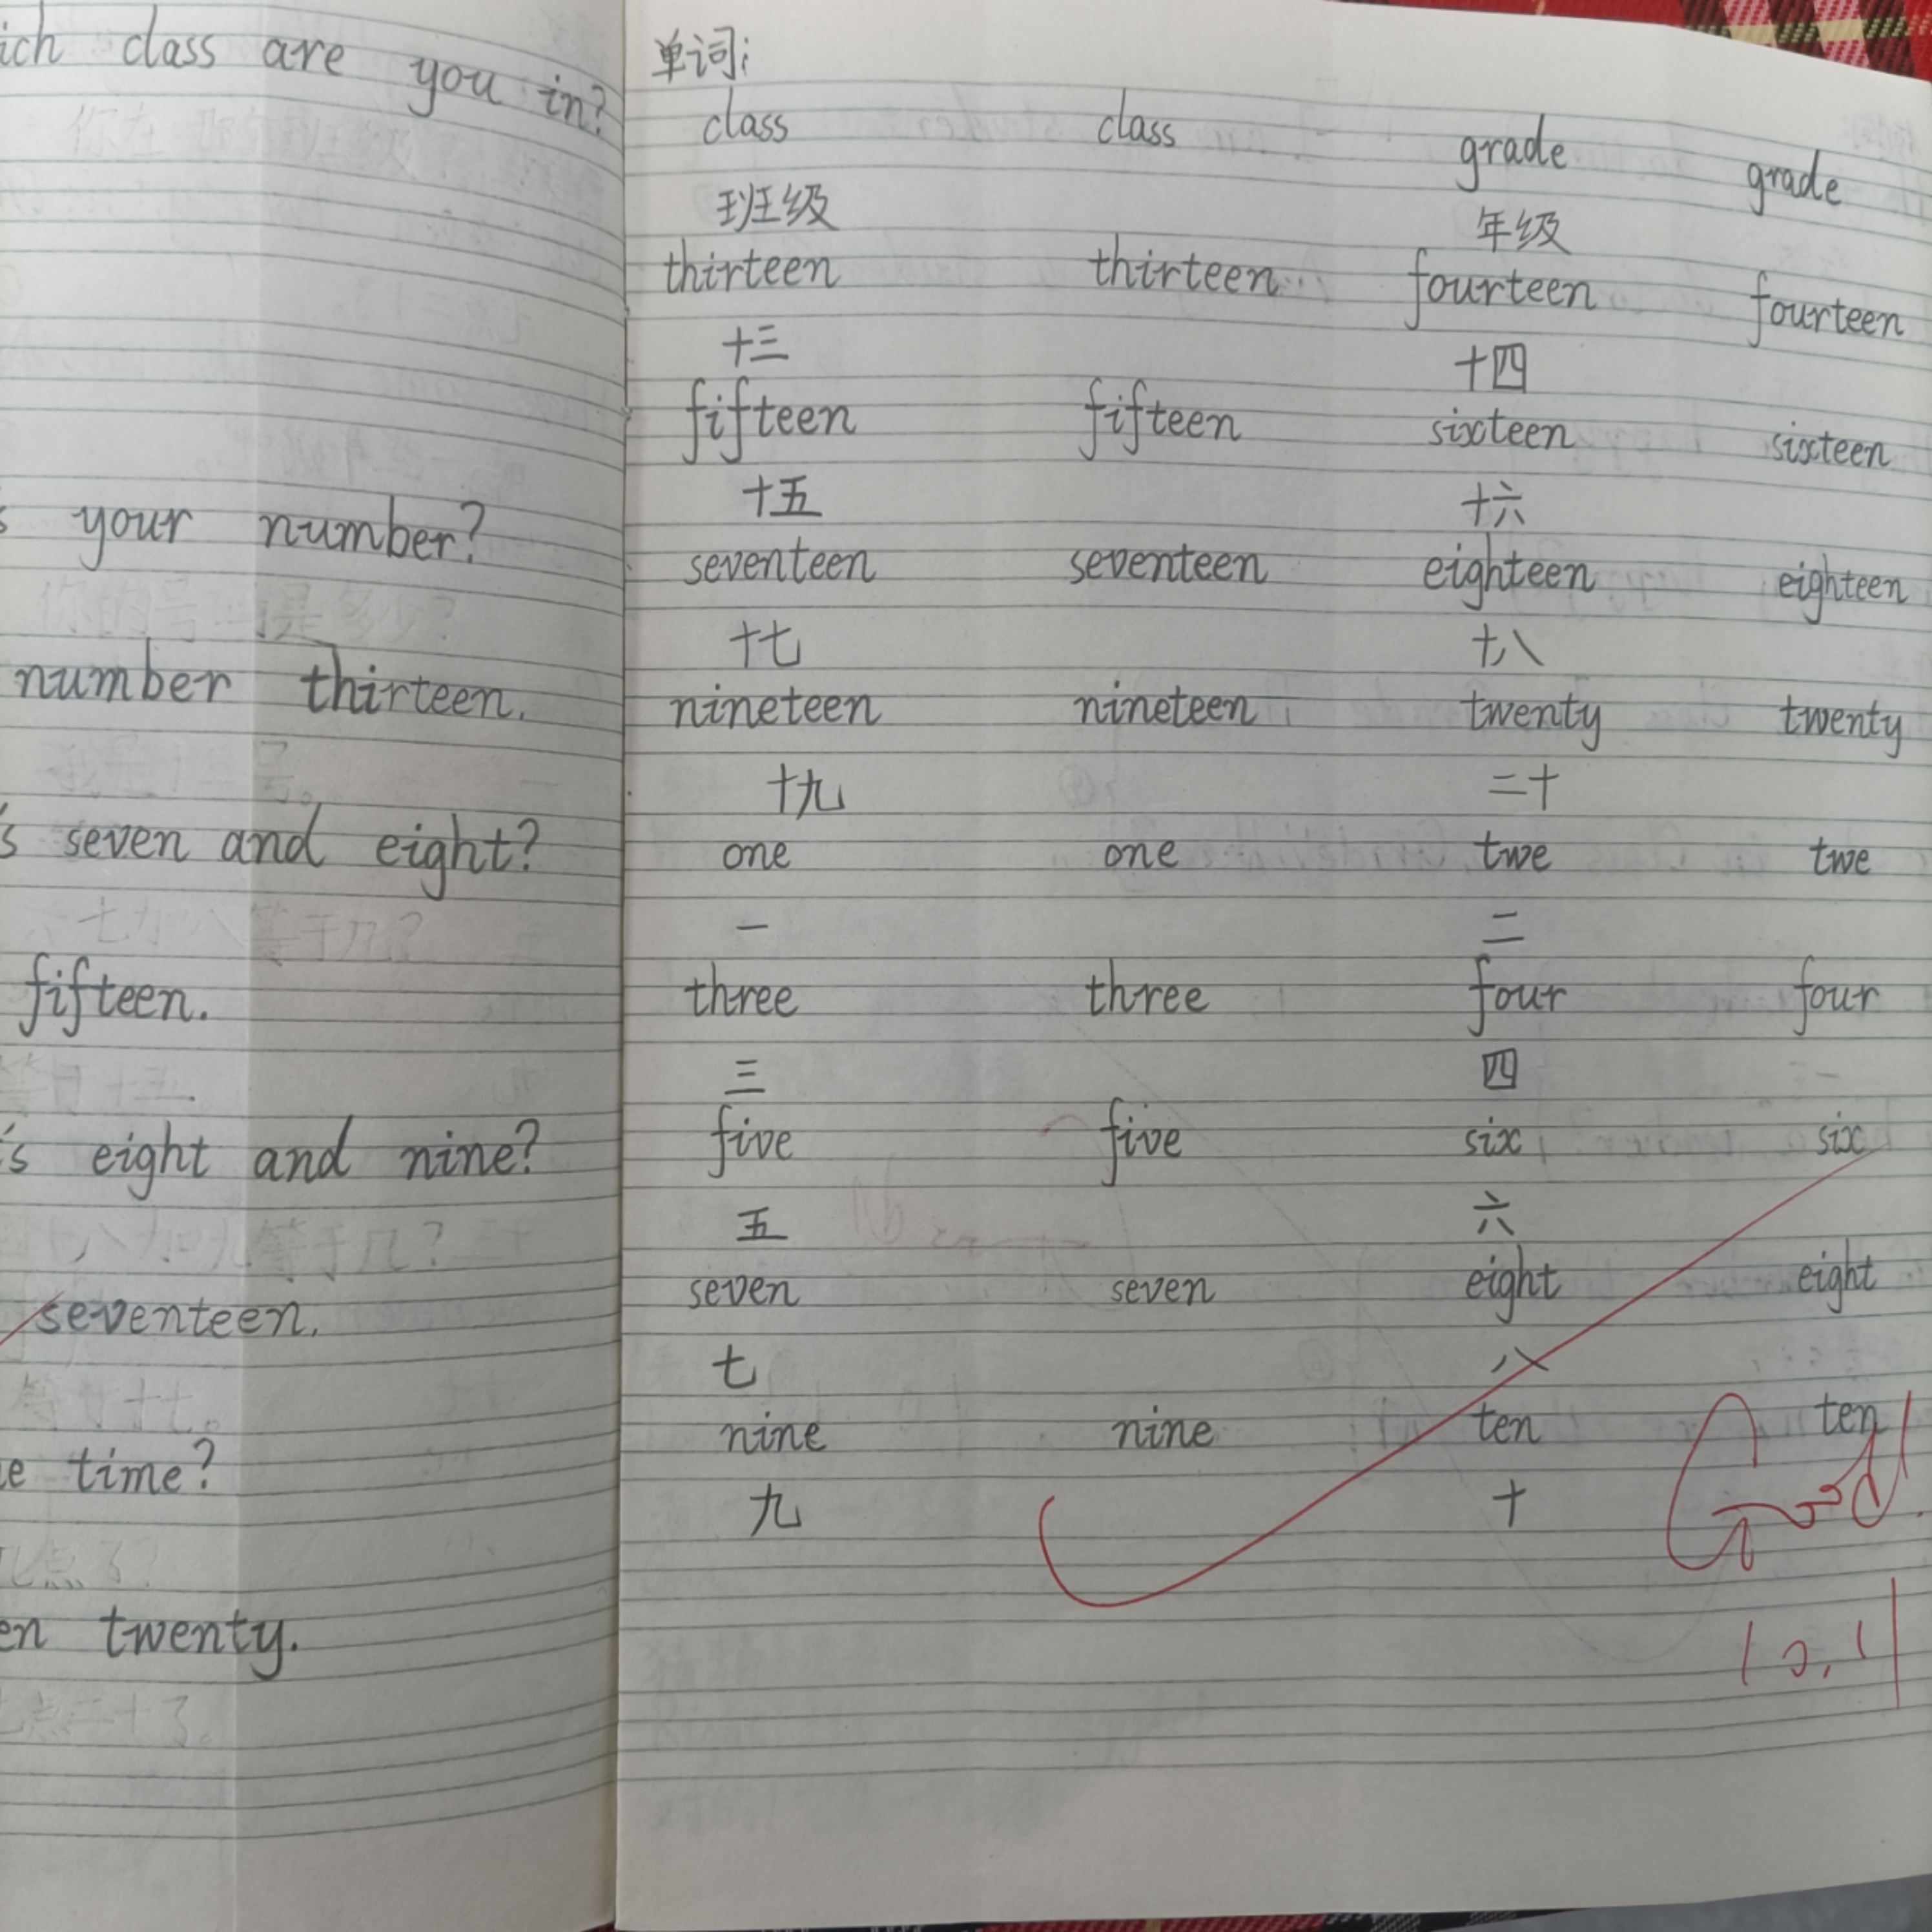 class are you in?
your number?
number thirteen.
s seven and eight?
fifteen.
's eight and nine?
seventeen.
time?
twenty.
单词:
class class grade grade
班级 年级
thirteen thirteen fourteen fourteen
十三 十四
fifteen fifteen sixteen sixteen
十五 十六
seventeen seventeen eighteen eighteen
十七 十八
nineteen nineteen twenty twenty
十九 二十
one one twe twe
一 二
three three four four
三 四
five five six six
五 六
seven seven eight eight
七 八
nine nine ten ten
九 十
Good!
10.11